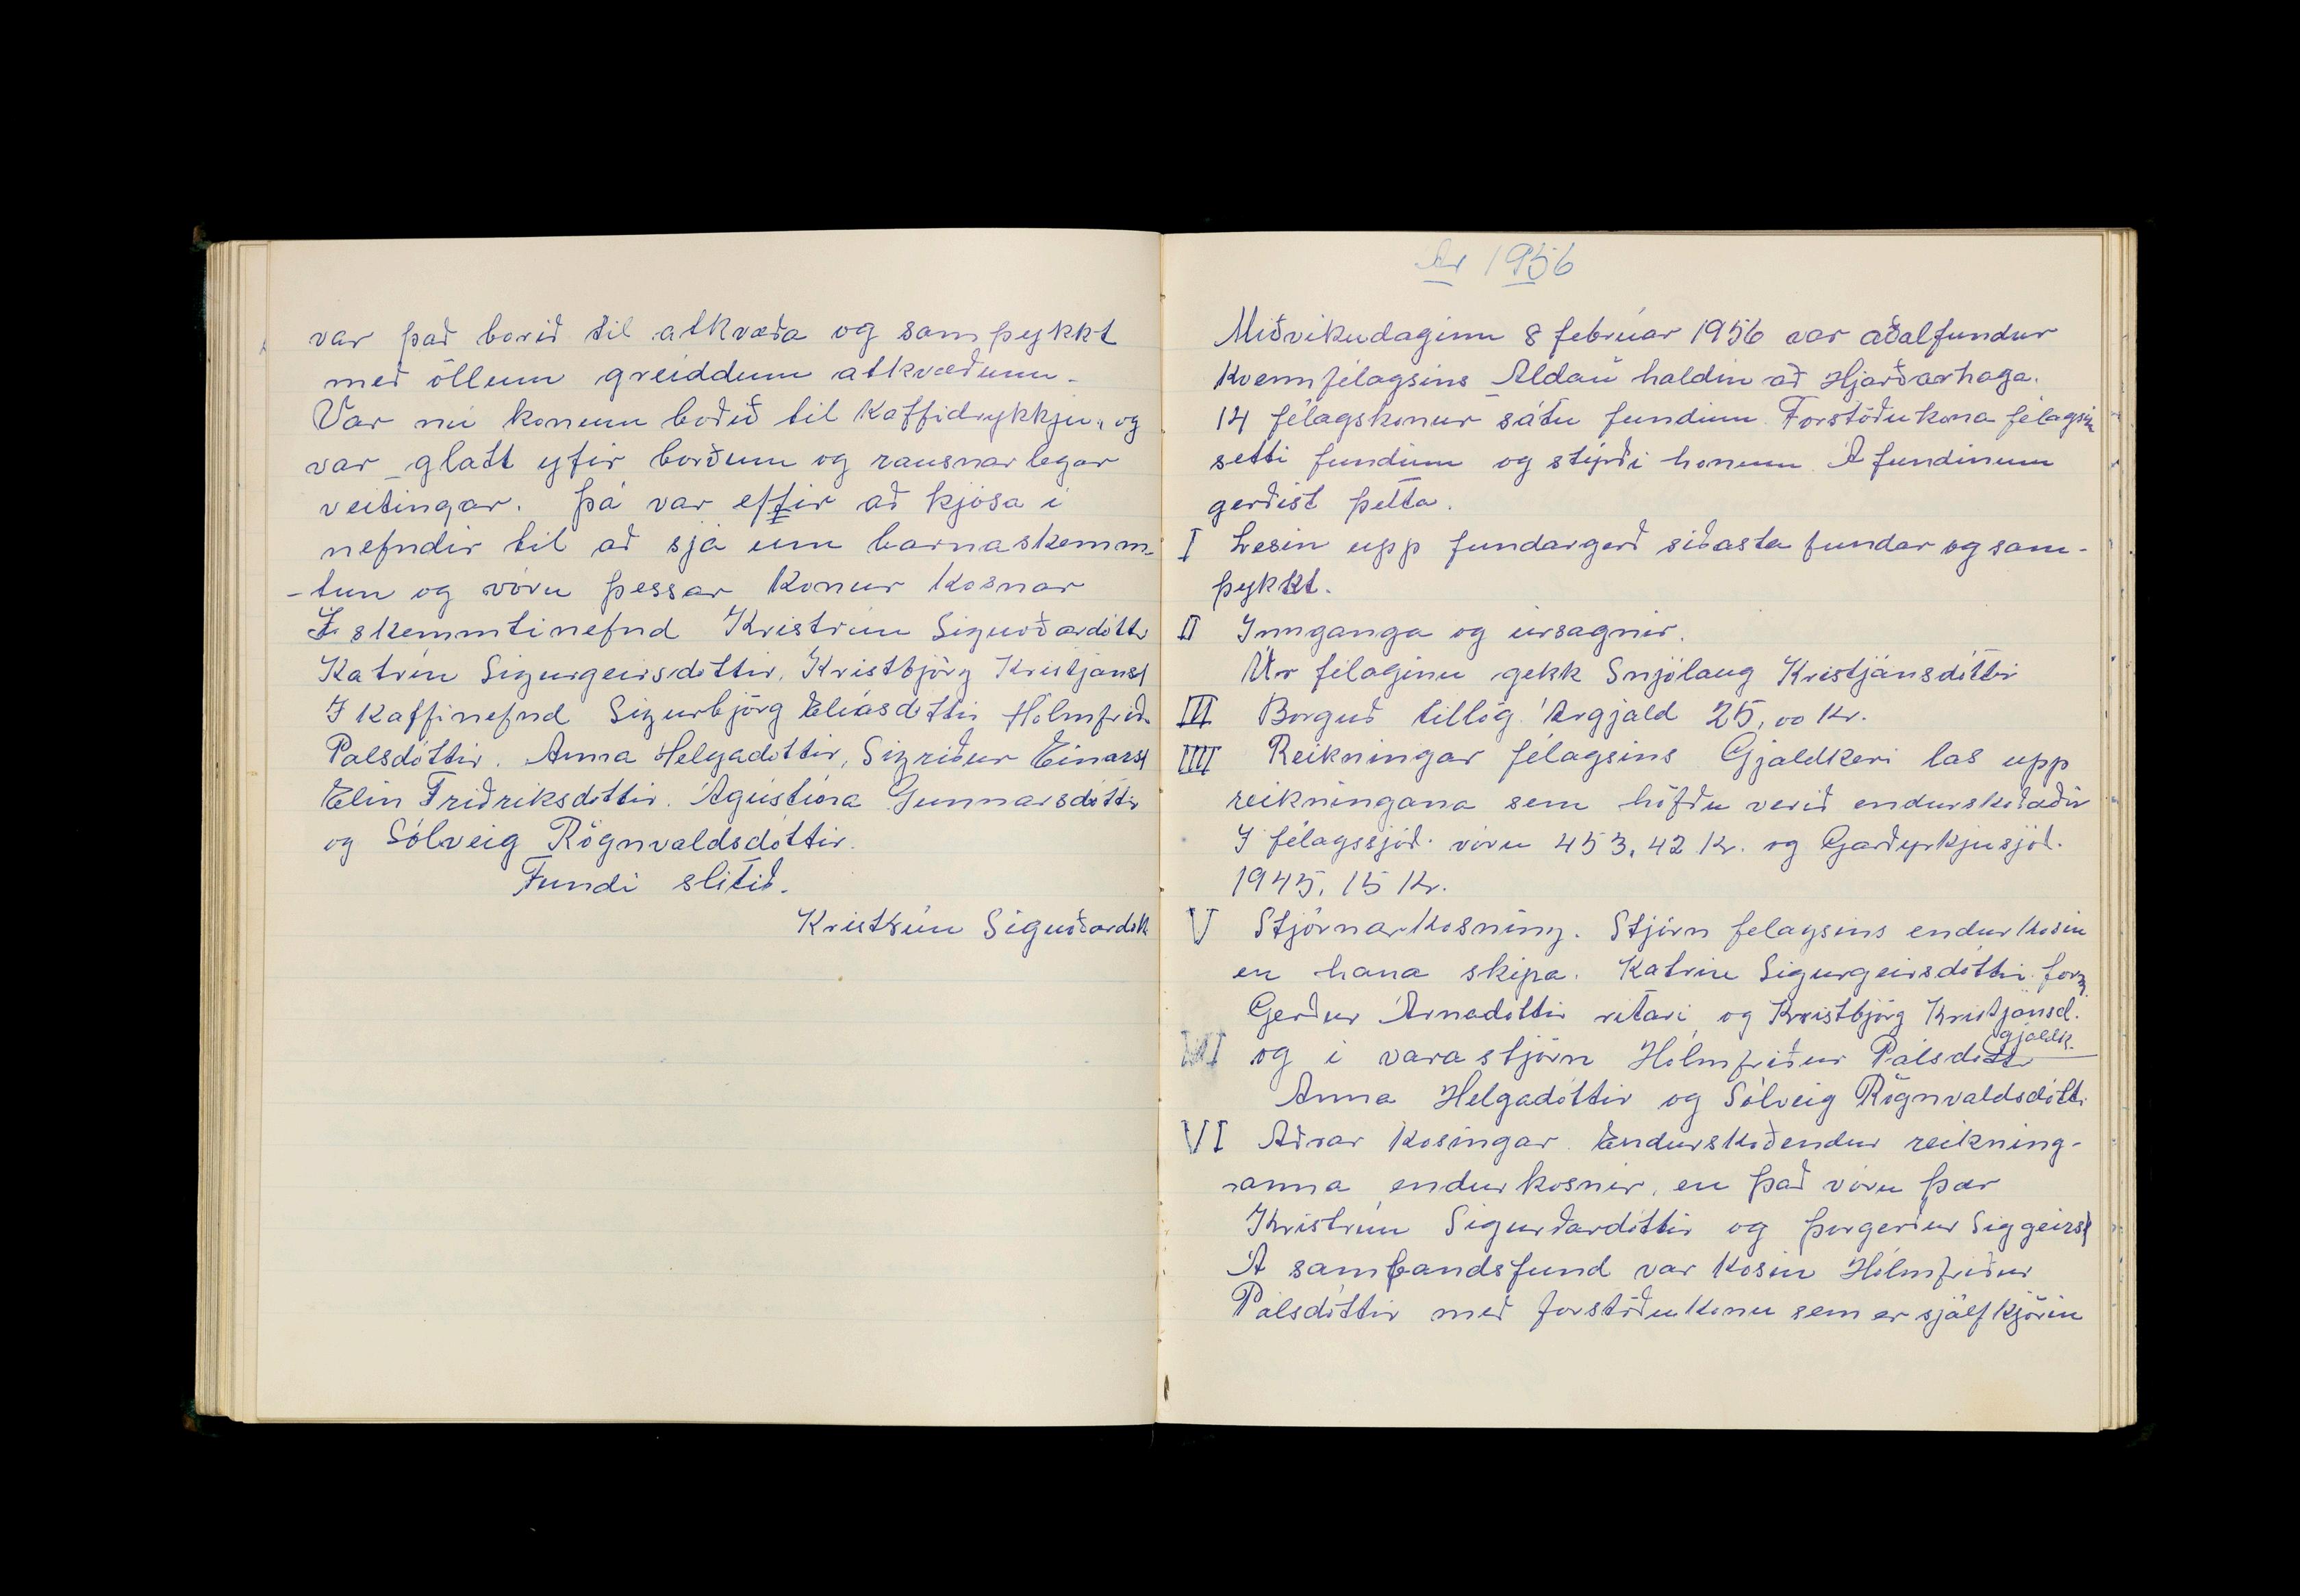 var það borið til atkvæða og samþykkt
með öllum greiddum atkvæðum.
Var nú konum boðið til kaffidrykkju, og
var glatt yfir borðum og rausnarlegar
veitingar. Þá var eftir að kjósa i
nefndir til að sjá um barnaskemm-
-tun og vóru þessar konur kosnar
I skemmtinefnd Kristrún Siguðardóttr
Katrín Sigurgeirsdóttir, Kristbjörg Kristjánsd
I kaffinefnd Sigurbjörg Elíasdóttir Hólmfríð.
Palsdóttir. Anna Helgadóttir, Sigríður Einarsd
Elín Friðriksdóttir. Ágústína Gunnarsdóttir
og Sólveig Rögnvaldsdóttir.
Fundi slitið.
Kristrún Siguðardótt
Ár 1956
Miðvikudaginn 8 febrúar 1956 var aðalfundur
Kvennfélagsins Aldan haldin að Hjarðarhaga.
14 félagskonur sátu fundinn. Forstöðukona félagsin
setti fundinn og stýrði honum. Á fundinum
gerðist þetta.
I Lesin upp fundargerð síðasta fundar og sam-
þykkt.
II Innganga og úrsagnir.
Úr félaginu gekk Snjólaug Kristjánsdóttir
III Borguð tillög. Árgjald 25,00 Kr.
IIII Reikningar félagsins Gjaldkeri las upp
reikningana sem höfðu verið endurskoðaðir
I félagssjóð. vóru 453,42 Kr. og Garðyrkjusjóð.
1945,15 Kr.
V Stjórnarkosning. Stjórn felagsins endurkosin
en hana skipa. Katrín Sigurgeirsdóttir form
Gerður Árnadóttir ritari og Kristbjörg Kristjánsd.
gjaldk.
og i varastjórn Hólmfríður Pálsdótt
Anna Helgadóttir og Sólveig Rögnvaldsdótti
VI Aðrar kosingar. Endurskoðendur reikning-
anna endurkosnir, en það vóru þær
Kristrún Sigurðardóttir og Þorgerður Siggeirsd
Á sambandsfund var kosin Hólmfríður
Pálsdóttir með forstöðukonu sem er sjálfkjörin